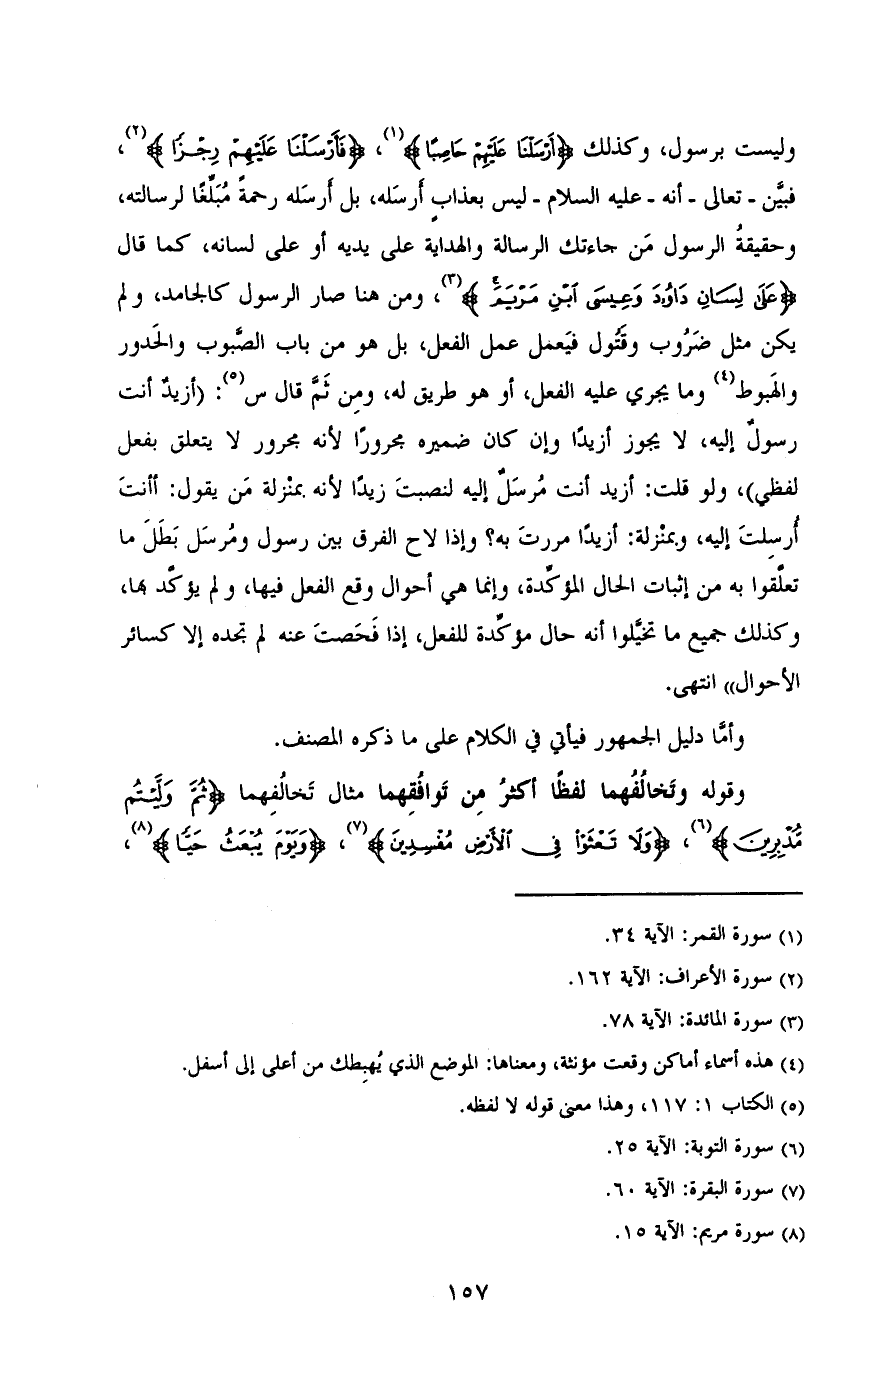 وليست برسول، وكذلك ﴿أَرْسَلْنَا عَلَيْهِمْ حَاصِبًا﴾(١)، ﴿فَأَرْسَلْنَا عَلَيْهِمْ رِجْزًا﴾(٢)،
فبيَّن - تعالى - أنه - عليه السلام - ليس بعذابٍ أرسَله، بل أرسَله رحمةً مُبَلِّغًا لرسالته،
وحقيقةُ الرسول مَن جاءتك الرسالة والهداية على يديه أو على لسانه، كما قال
﴿عَلَىٰ لِسَانِ دَاوُۥدَ وَعِيسَى ٱبْنِ مَرْيَمَ﴾(٣)، ومن هنا صار الرسول كالجامد، ولم
يكن مثل ضَرُوب وقَتُول فيَعمل عمل الفعل، بل هو من باب الصَّبوب والحَدور
والهَبوط(٤) وما يجري عليه الفعل، أو هو طريق له، ومِن ثَمَّ قال س(٥): (أزيدٌ أنت
رسولٌ إليه، لا يجوز أزيدًا وإن كان ضميره مجرورًا لأنه مجرور لا يتعلق بفعل
لفظي)، ولو قلت: أزيد أنت مُرسَلٌ إليه لنصبتَ زيدًا لأنه بمنْزلة مَن يقول: أأنتَ
أُرسِلتَ إليه، وبمنْزلة: أزيدًا مررتَ به؟ وإذا لاح الفرق بين رسول ومُرسَل بَطَلَ ما
تعلَّقوا به من إثبات الحال المؤكِّدة، وإنما هي أحوال وقع الفعل فيها، ولم يؤكَّد بها،
وكذلك جميع ما تخيَّلوا أنه حال مؤكِّدة للفعل، إذا فَحَصتَ عنه لم تجده إلا كسائر
الأحوال» انتهى.
وأمَّا دليل الجمهور فيأتي في الكلام على ما ذكره المصنف.
وقوله وتَخالُفُهما لفظًا أكثرُ مِن تَوافُقِهما مثال تَخالُفِهما ﴿ثُمَّ وَلَّيْتُم
مُّدْبِرِينَ﴾(٦)، ﴿وَلَا تَعْثَوْا۟ فِى ٱلْأَرْضِ مُفْسِدِينَ﴾(٧)، ﴿وَيَوْمَ يُبْعَثُ حَيًّا﴾(٨)،
(١) سورة القمر: الآية ٣٤.
(٢) سورة الأعراف: الآية ١٦٢.
(٣) سورة المائدة: الآية ٧٨.
(٤) هذه أسماء أماكن وقعت مؤنثة، ومعناها: الموضع الذي يُهبِطك من أعلى إلى أسفل.
(٥) الكتاب ١: ١١٧، وهذا معنى قوله لا لفظه.
(٦) سورة التوبة: الآية ٢٥.
(٧) سورة البقرة: الآية ٦٠.
(٨) سورة مريم: الآية ١٥.
١٥٧